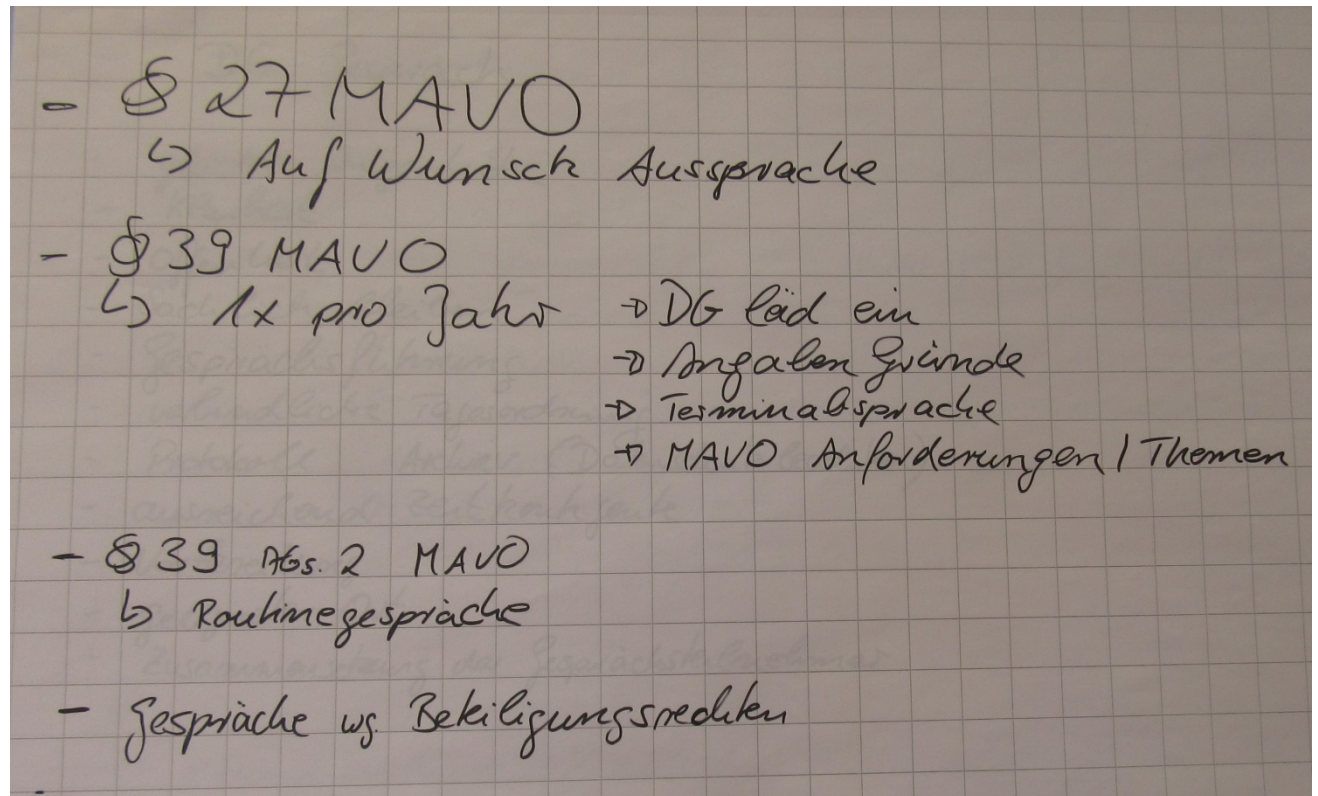 - § 27 MAVO
↳ Auf Wunsch Aussprache
- § 39 MAVO
↳ 1x pro Jahr → DG läd ein
→ Angaben Gründe
→ Terminabsprache
→ MAVO Anforderungen / Themen
- § 39 Abs. 2 MAVO
↳ Routinegespräche
- Gespräche wg. Beteiligungsrechten